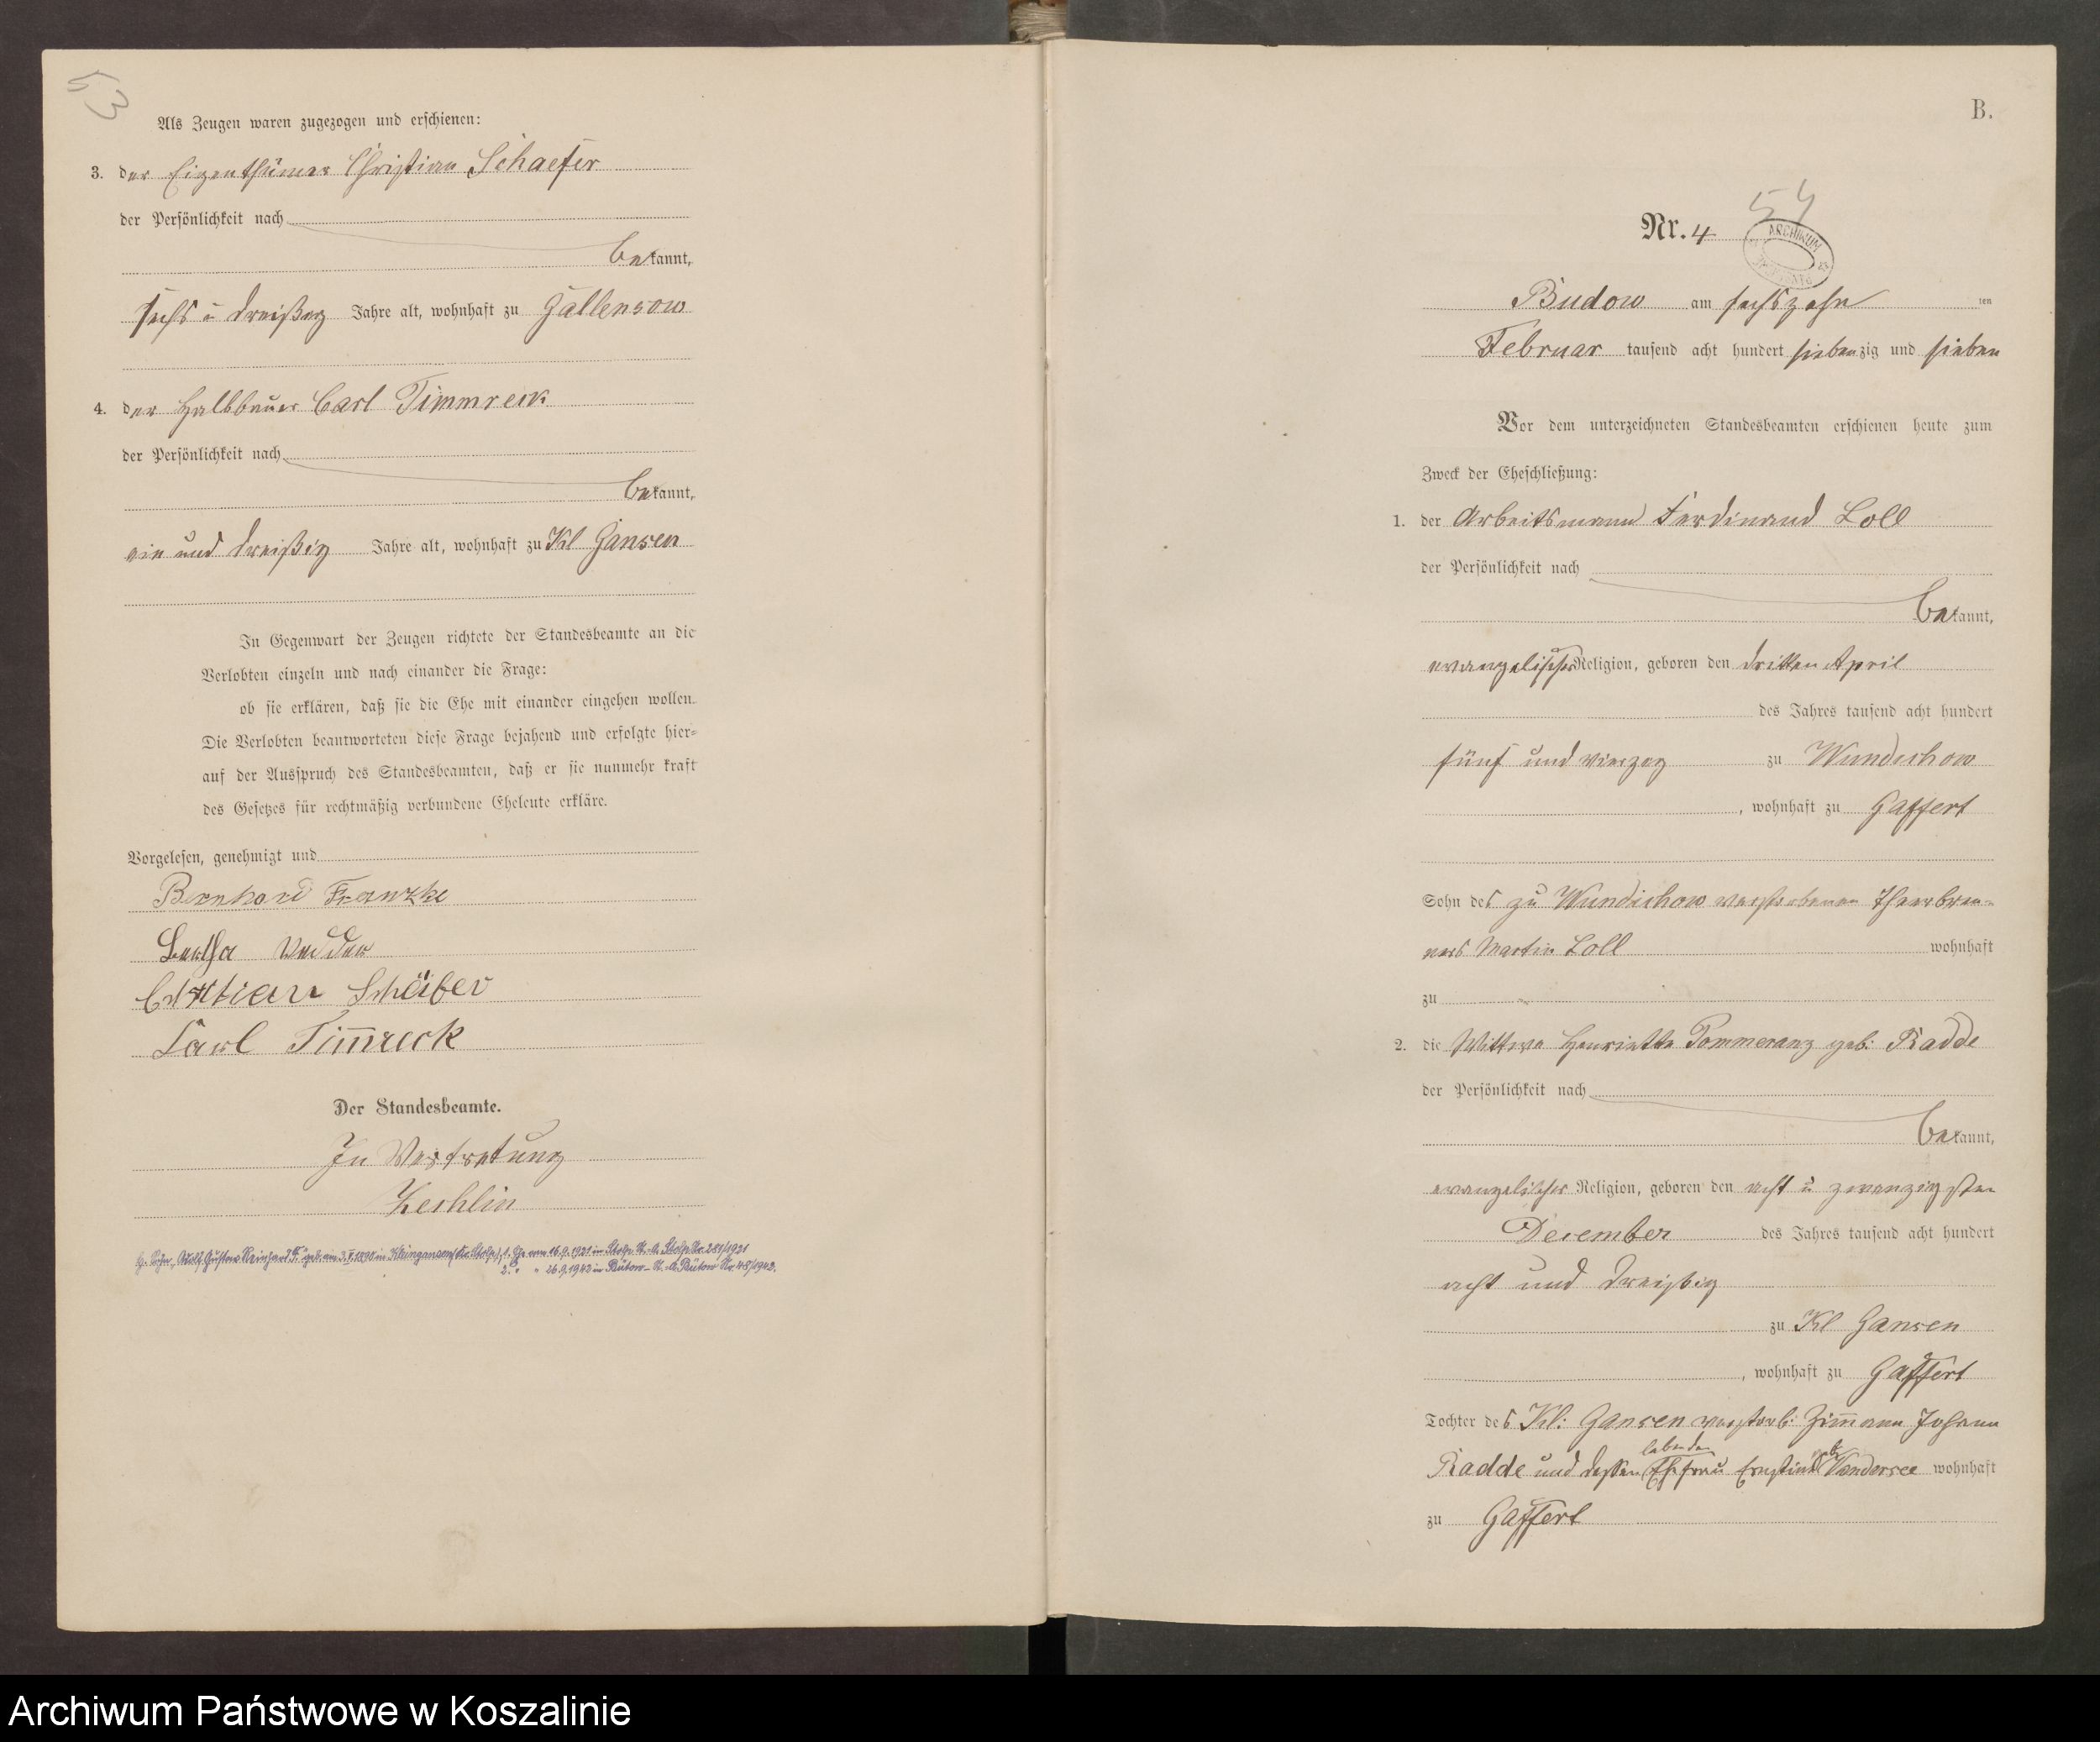 53
Als Zeugen waren zugezogen und erschienen:
3. der Eigenthümer Christian Schaefer
der Persönlichkeit nach
bekannt,
sechs u dreißig Jahre alt, wohnhaft zu Gallensow
4. der Halbbauer Carl Timmreck
der Persönlichkeit nach
bekannt,
ein und dreißig Jahre alt, wohnhaft zu Kl Gansen
In Gegenwart der Zeugen richtete der Standesbeamte an die
Verlobten einzeln und nach einander die Frage:
ob sie erklären, daß sie die Ehe mit einander eingehen wollen.
Die Verlobten beantworteten diese Frage bejahend und erfolgte hier-
auf der Ausspruch des Standesbeamten, daß er sie nunmehr kraft
des Gesetzes für rechtmäßig verbundene Eheleute erkläre.
Vorgelesen, genehmigt und
Bernhard Franzke
Bertha Vedder
Christian Schäfer
Carl Tim̅reck
Der Standesbeamte.
In Vertretung
Zechlin
Sohn, Adolf Gustav Reinhard F. geb. am 3.V.1890 in Kleingansen (Kr. Stolp), 1. Ehe am 16.9.1921 in Stolp St.-A. Stolp Nr. 281/1921
2. " " 26.9.1942 in Bütow St.-A. Bütow Nr. 48/1942.
B.
54
Nr. 4
ARCHIWUM
Budow am sechszehn ten
Februar tausend acht hundert siebenzig und sieben
Vor dem unterzeichneten Standesbeamten erschienen heute zum
Zweck der Eheschließung:
1. der Arbeitsmann Ferdinand Loll
der Persönlichkeit nach
bekannt,
evangelischer Religion, geboren den dritten April
des Jahres tausend acht hundert
fünf und vierzig zu Wundichow
, wohnhaft zu Gaffert
Sohn des zu Wundichow verstorbenen Theerbren-
ners Martin Loll wohnhaft
zu
2. die Wittwe Henriette Pommeranz geb: Radde
der Persönlichkeit nach
bekannt,
evangelischer Religion, geboren den acht u zwanzigsten
December des Jahres tausend acht hundert
acht und dreißig
zu Kl Gansen
, wohnhaft zu Gaffert
Tochter des Kl: Gansen verstorb: Zim̅erm Johann
lebenden
Radde und dessen Ehefrau Ernstine geb Vandersee wohnhaft
zu Gaffert
Archiwum Państwowe w Koszalinie